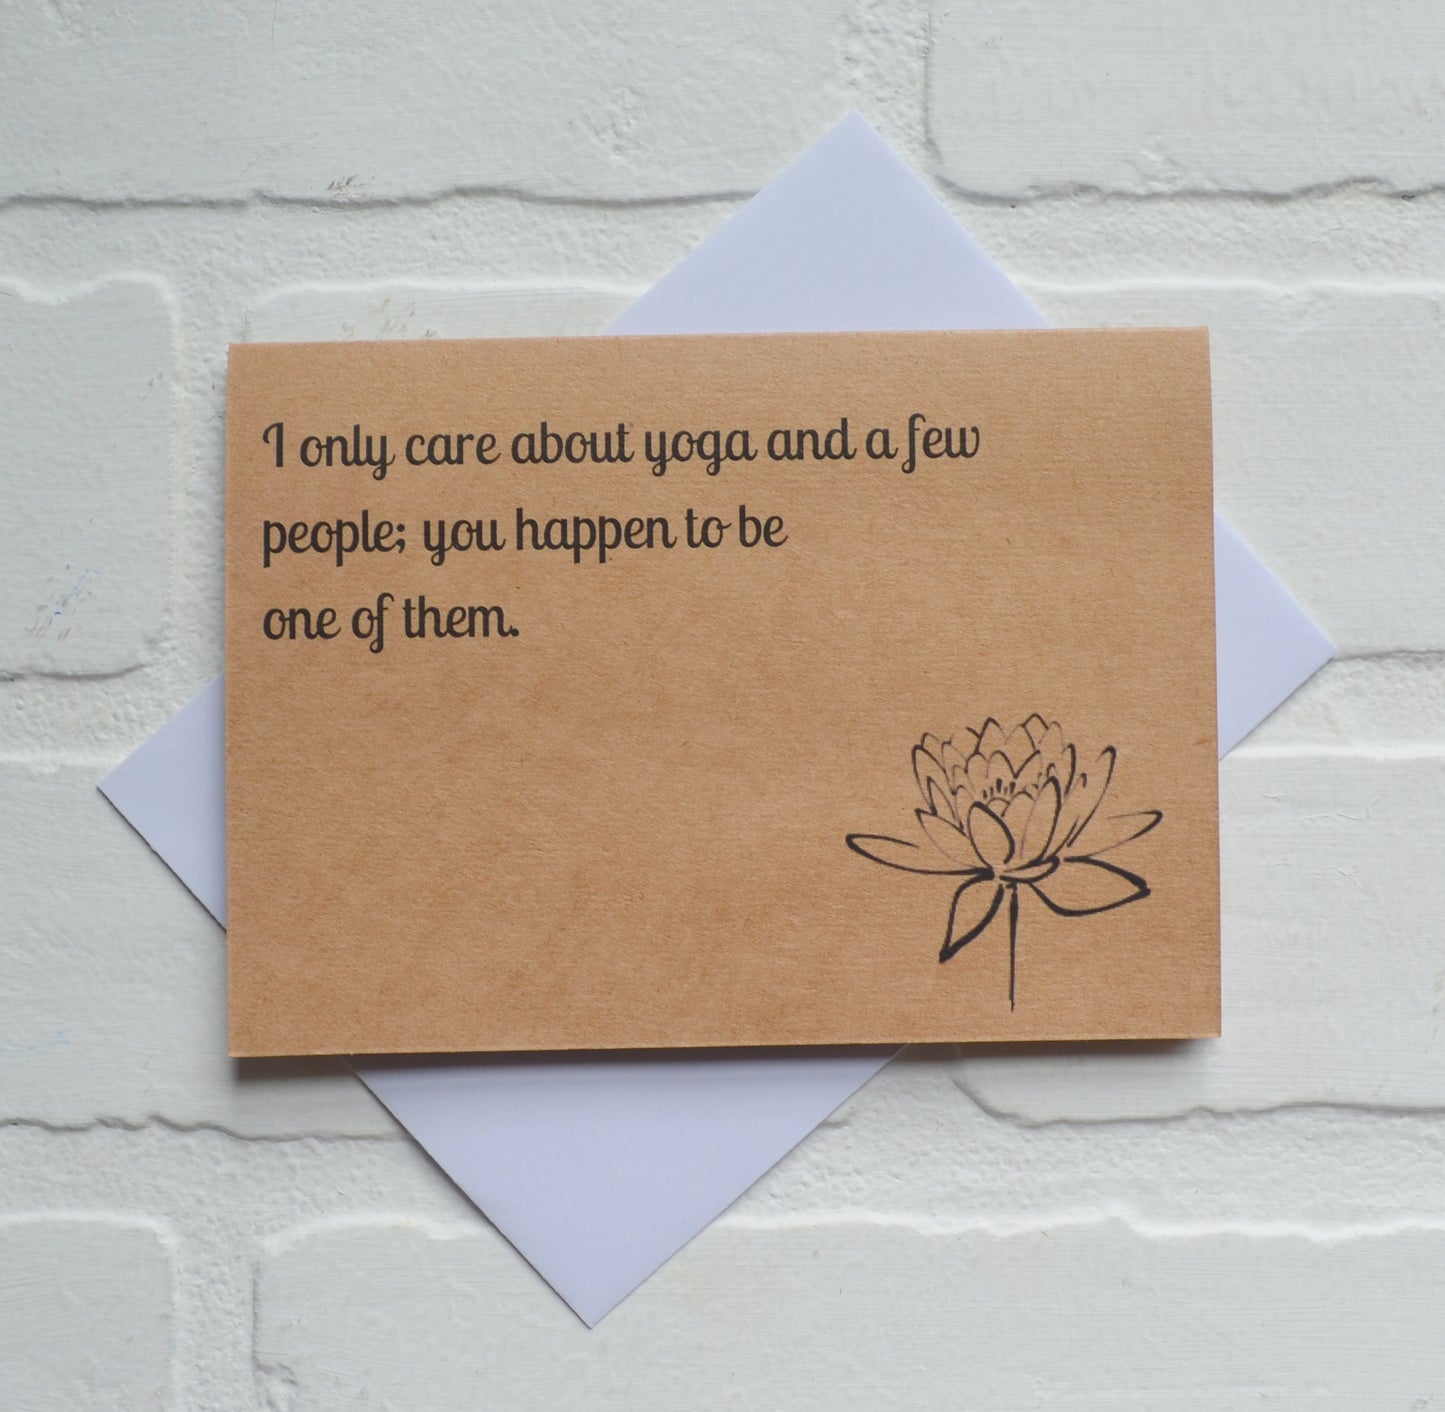 I only care about yoga and a few
people; you happen to be
one of them.